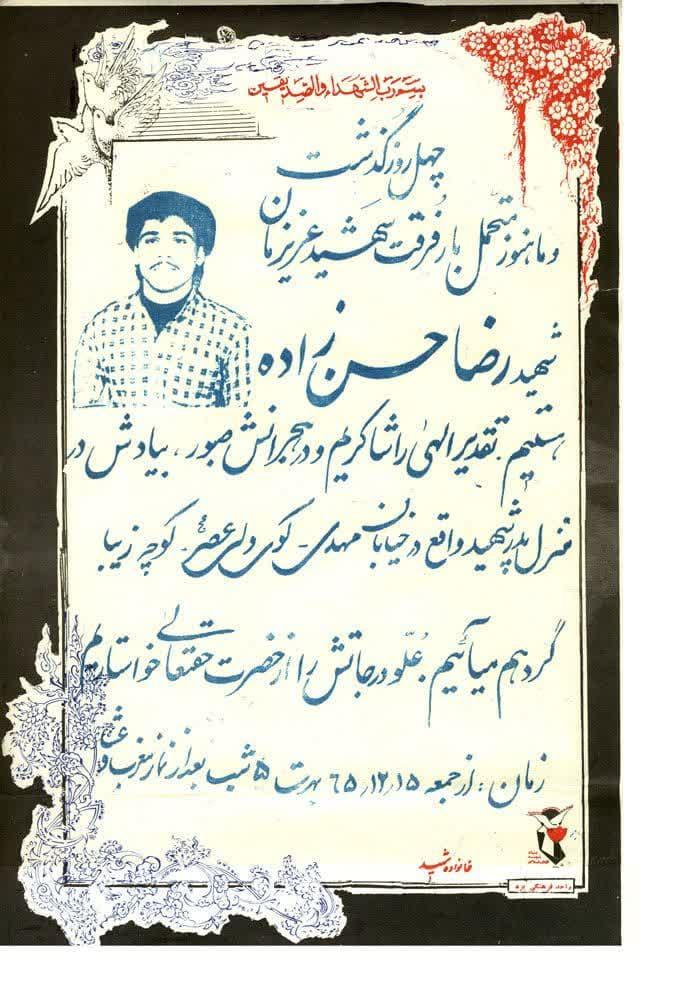 بسم رب الشهداء والصدیقین
چهل روز گذشت
و ما هنوز متحمل بار فُرقت شهید عزیزمان
شهید رضا حسن زاده
هستیم. تقدیر الهیٰ را شاکریم و در هجرانش صبور، بیادش در
منزل پدر شهید واقع در خیابان مهدی - کوی ولی عصر - کوچه زیبا
گرد هم میآئیم. عُلّو درجاتش را از حضرت حقتعالی خواستاریم
زمان: از جمعه ۶۵٫۱۲٫۱۵ بمدت ۵ شب بعد از نماز مغرب و عشاء
خانواده شهید
واحد فرهنگی یزد